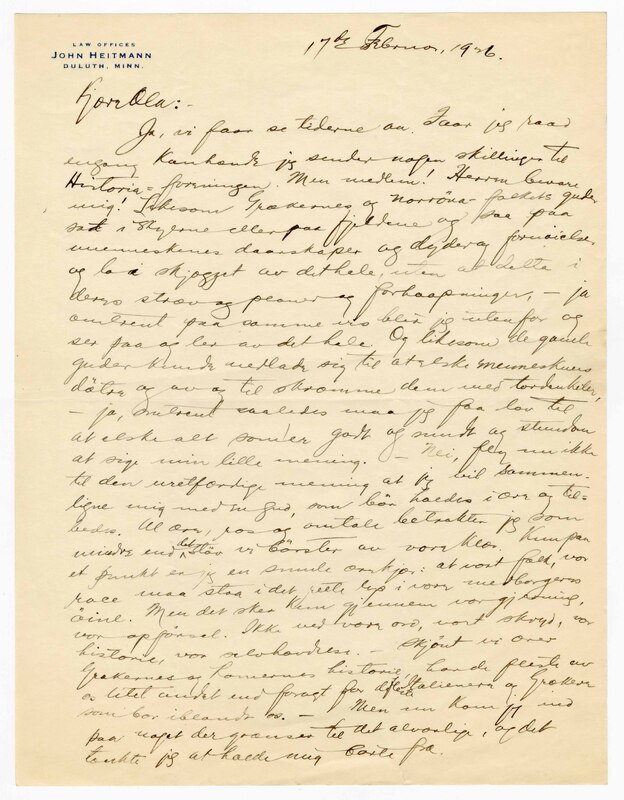 LAW OFFICES
JOHN HEITMANN
DULUTH, MINN.
17de Februar, 1926.
Kjære Ola:-
Ja, vi faar se tiderne an. Faar jeg raad
engang kanhende jeg sender nogen skillinger til
Historie-foreningen. Men medlem! Herren bevare
mig! Likesom Grækernes og norröna-folkets guder
sad i skyerne eller paa fjeldene og saa paa
menneskenes daarskaper og dyder og fornöielser
og lo i skjegget av det hele, uten at delta i
deres stræv og planer og forhaapninger, - ja
omtrent paa samme vis blir jeg utenfor og
ser paa og ler av det hele. Og likesom de gamle
guder kunde nedlade sig til at elske menneskenes
dötre og av og til skræmme dem med tordenkiler,
- ja, omtrent saaledes maa jeg faa lov til
at elske alt som er godt og sundt og stundom
at sige min lille mening. - Nei, fly nu ikke
til den uretfærdige mening at jeg vil sammen-
ligne mig med en gud, som bör holdes i ære og til-
bedes. Al ære, ros og omtale betrakter jeg som
mindre end det stöv vi börster av vore klær. Kun paa
et punkt er jeg en smule ærekjær: at vort folk, vor
race maa staa i det rette lys i vore medborgeres
öine. Men det skal kun gjennem vor gjerning,
vor opförsel. Ikke ved vore ord, vort skryt, vor
historie, vor selvhævdelse. - Skjönt vi ærer
Grækernes og Romernes historie, har de fleste av
os litet andet end foragt for de Italienere og Grækere
som bor iblandt os. - Men nu kom jeg ind
paa noget der grænser til det alvorlige, og det
tænkte jeg at holde mig borte fra.